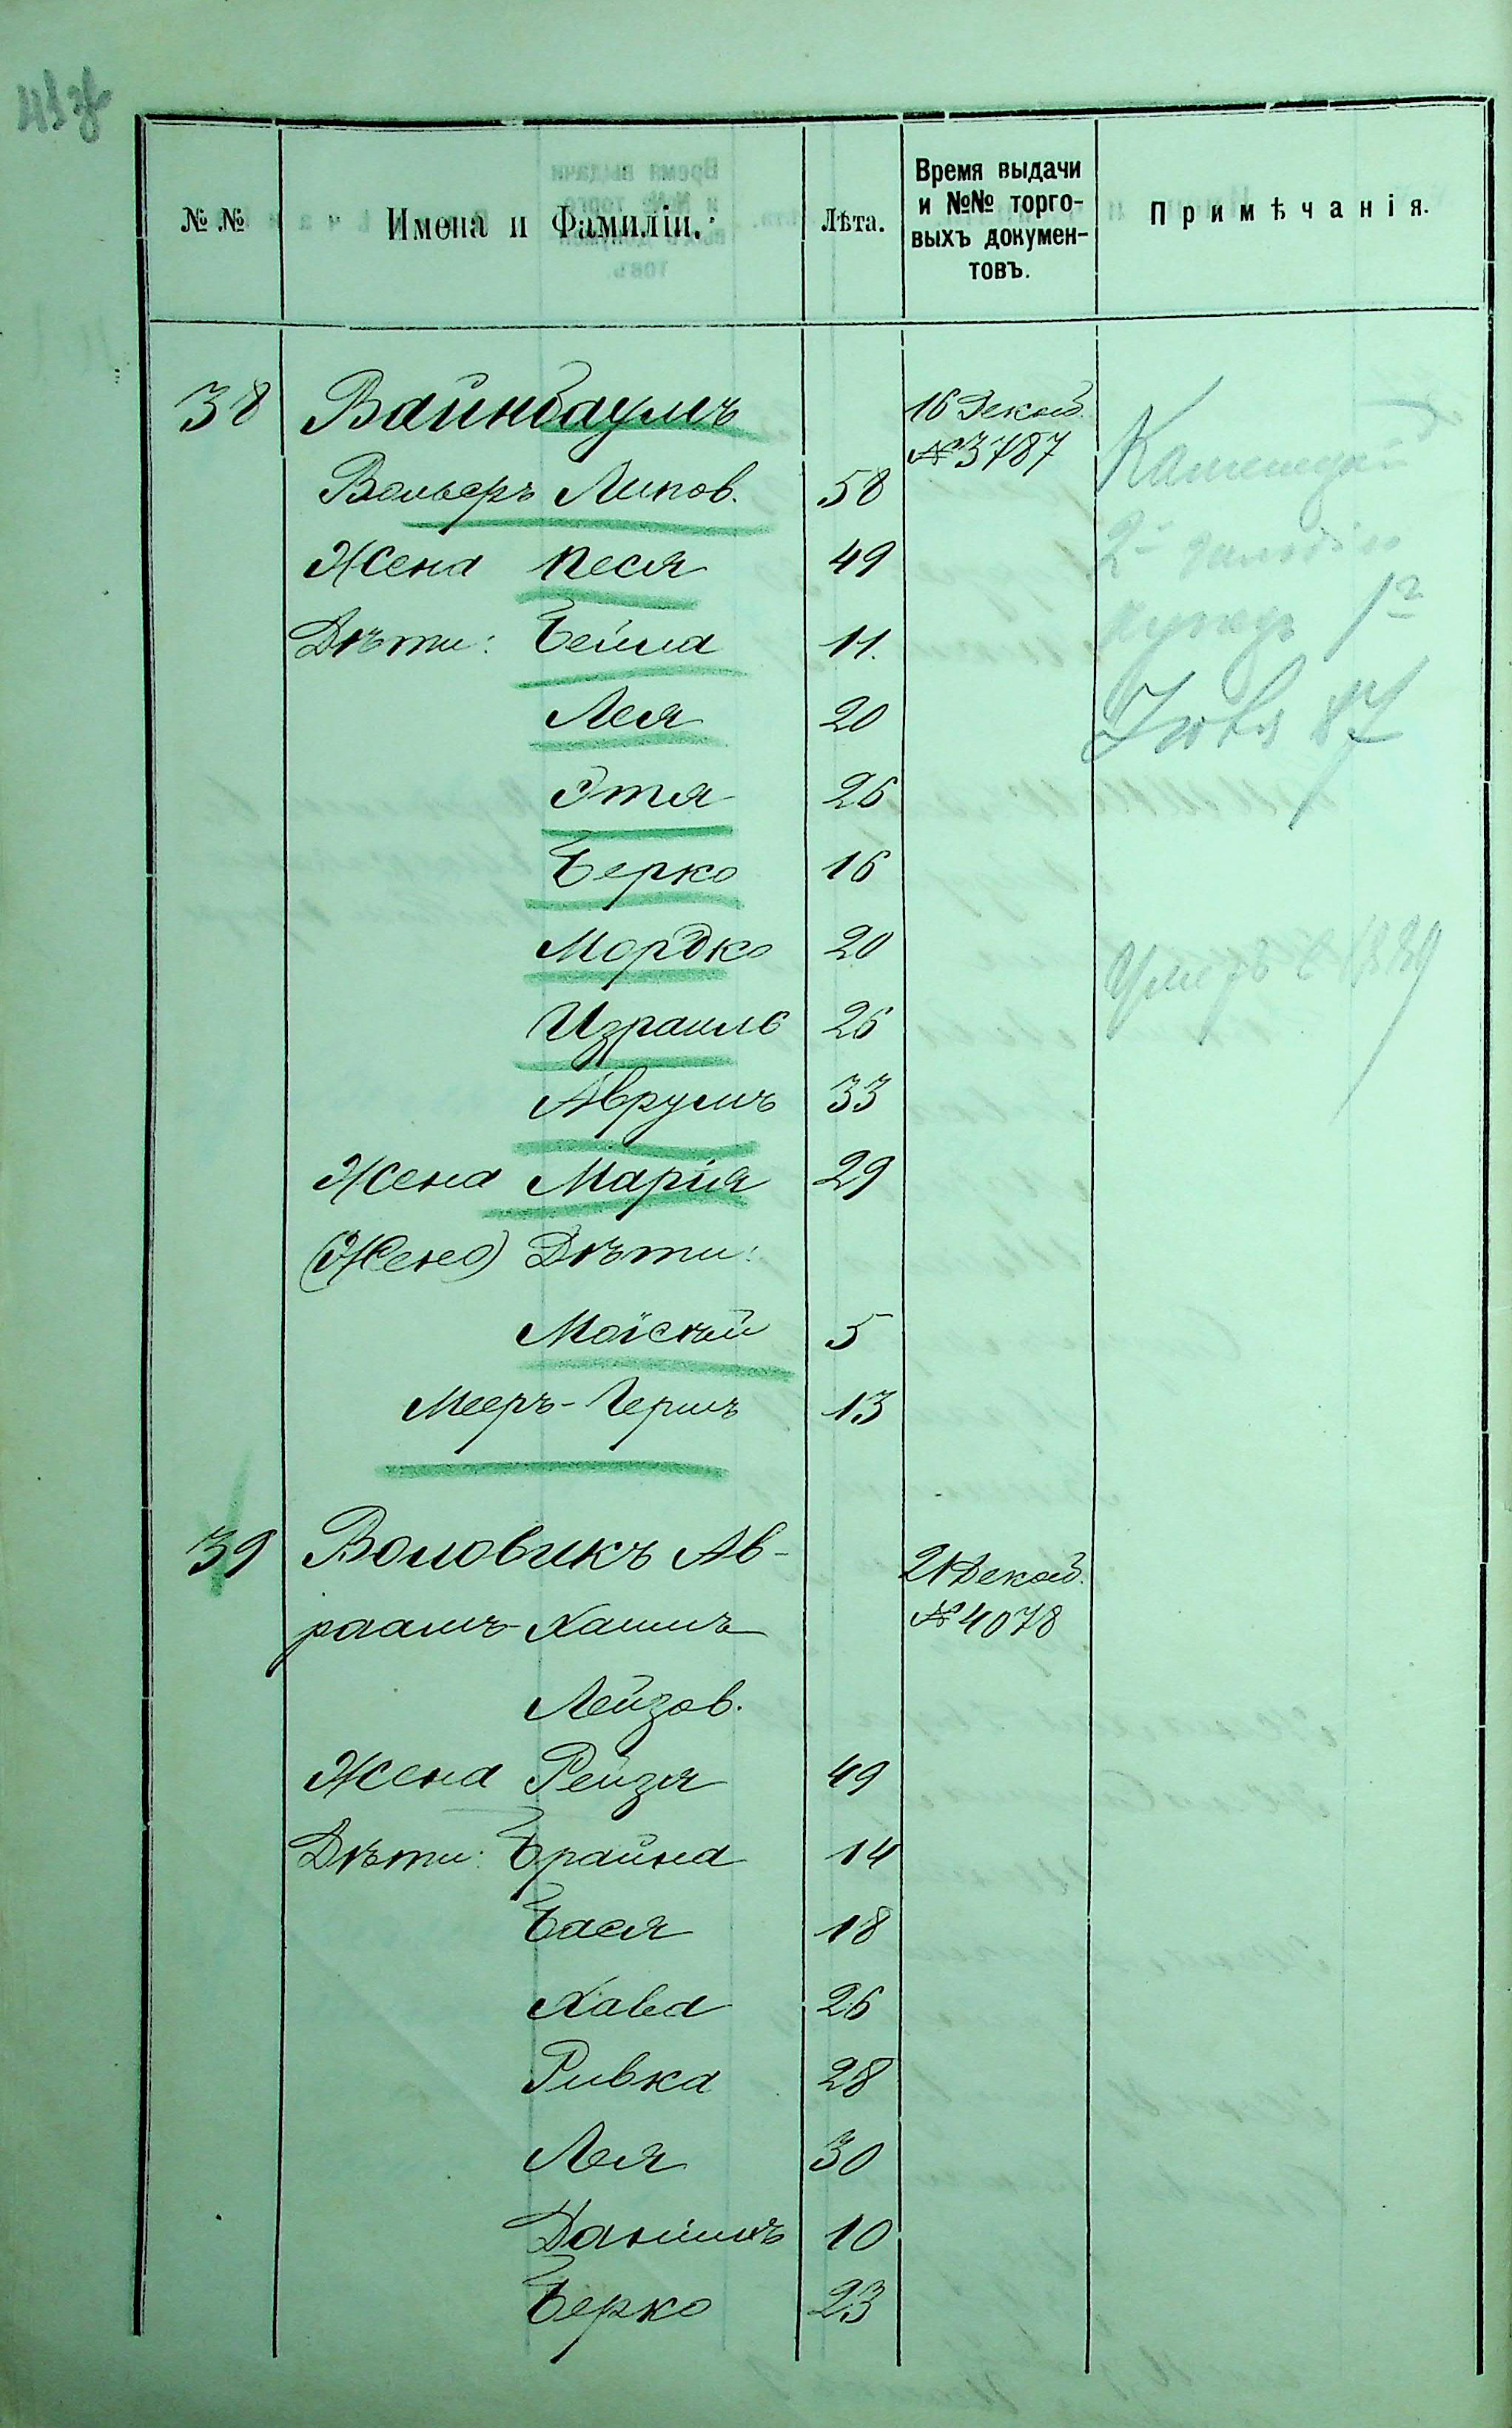 № №
Имена и Фамиліи.
Лѣта.
Время выдачи
и №№ торго-
выхъ докумен-
товъ.
Примѣчанія.
38 Вайнбаумъ 16 Декаб.
№ 3787
Вольфъ Липов. 58
Жена Песя 49
Дѣти: Бейла 11.
Лея 20
Этя 26
Берко 16
Мордко 20
Израиль 26
Аврумъ 33
Жена Марія 29
(Жена) Дѣти:
Моисѣй 5
Мееръ-Гершъ 13
39 Воловикъ Ав- 21 Декаб.
раамъ-Хаимъ № 4078
Лейзов.
Жена Рейзя 49
Дѣти: Брайна 14
Бася 18
Хава 26
Ривка 28
Лея 30
Даніилъ 10
Берко 23